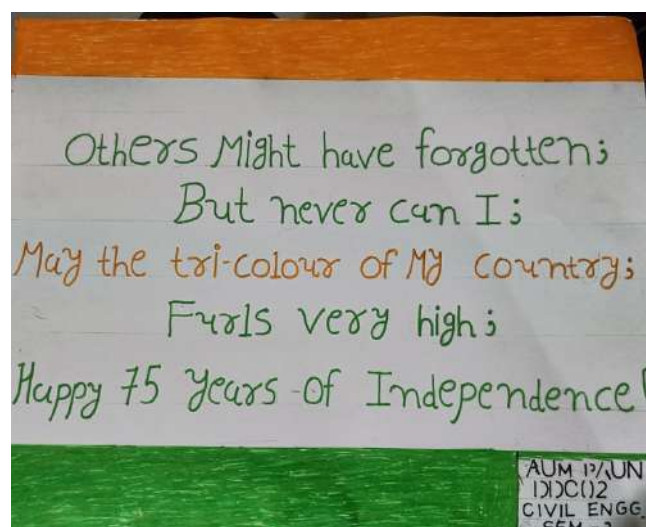 Others Might have forgotten;
But never can I;
May the tri-colour of My country;
Furls very high;
Happy 75 years of Independence!
AUM
CIVIL ENGG.